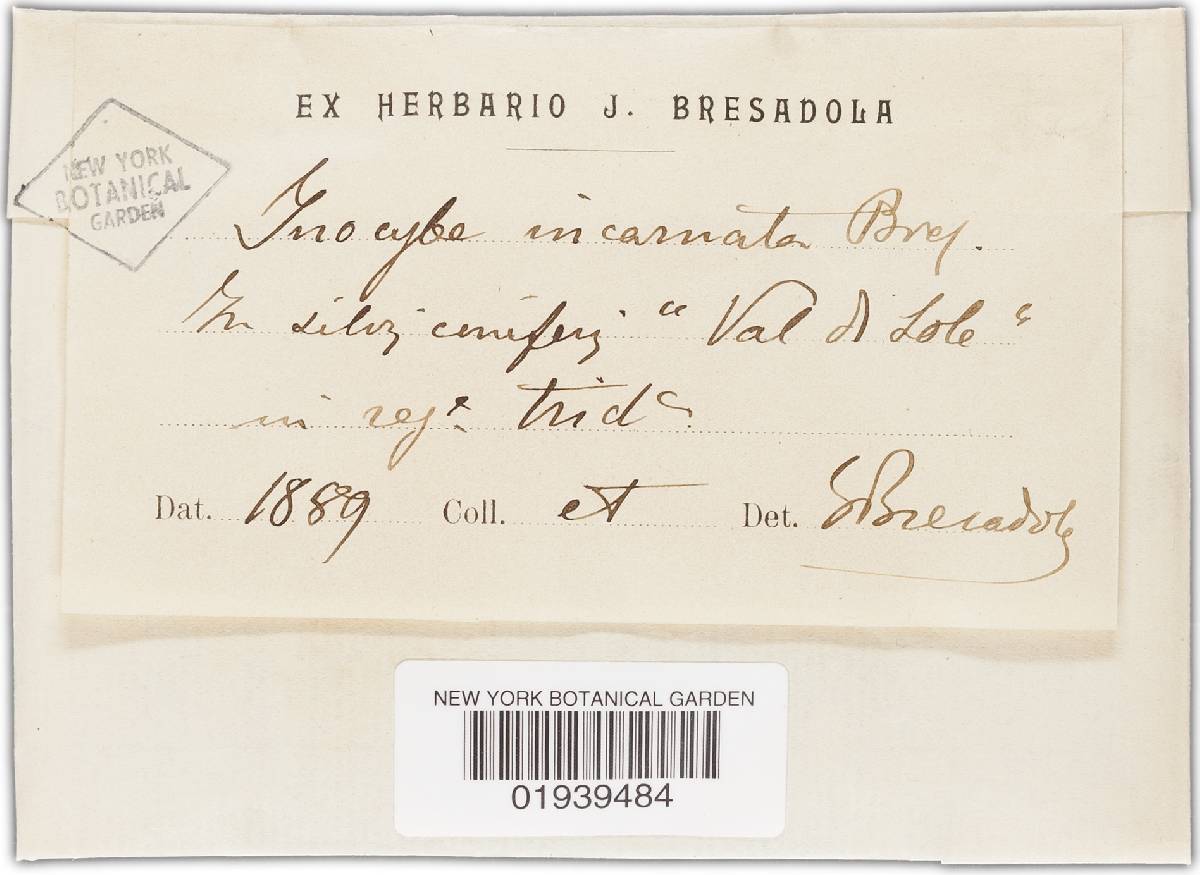 EX HERBARIO J. BRESADOLA
NEW YORK
BOTANICAL
GARDEN
Inocybe incarnata Bres.
In silvis coniferis "Val di Sole"
in reg.e trid.a
Dat. 1889 Coll. et Det. GBresadola
NEW YORK BOTANICAL GARDEN
01939484